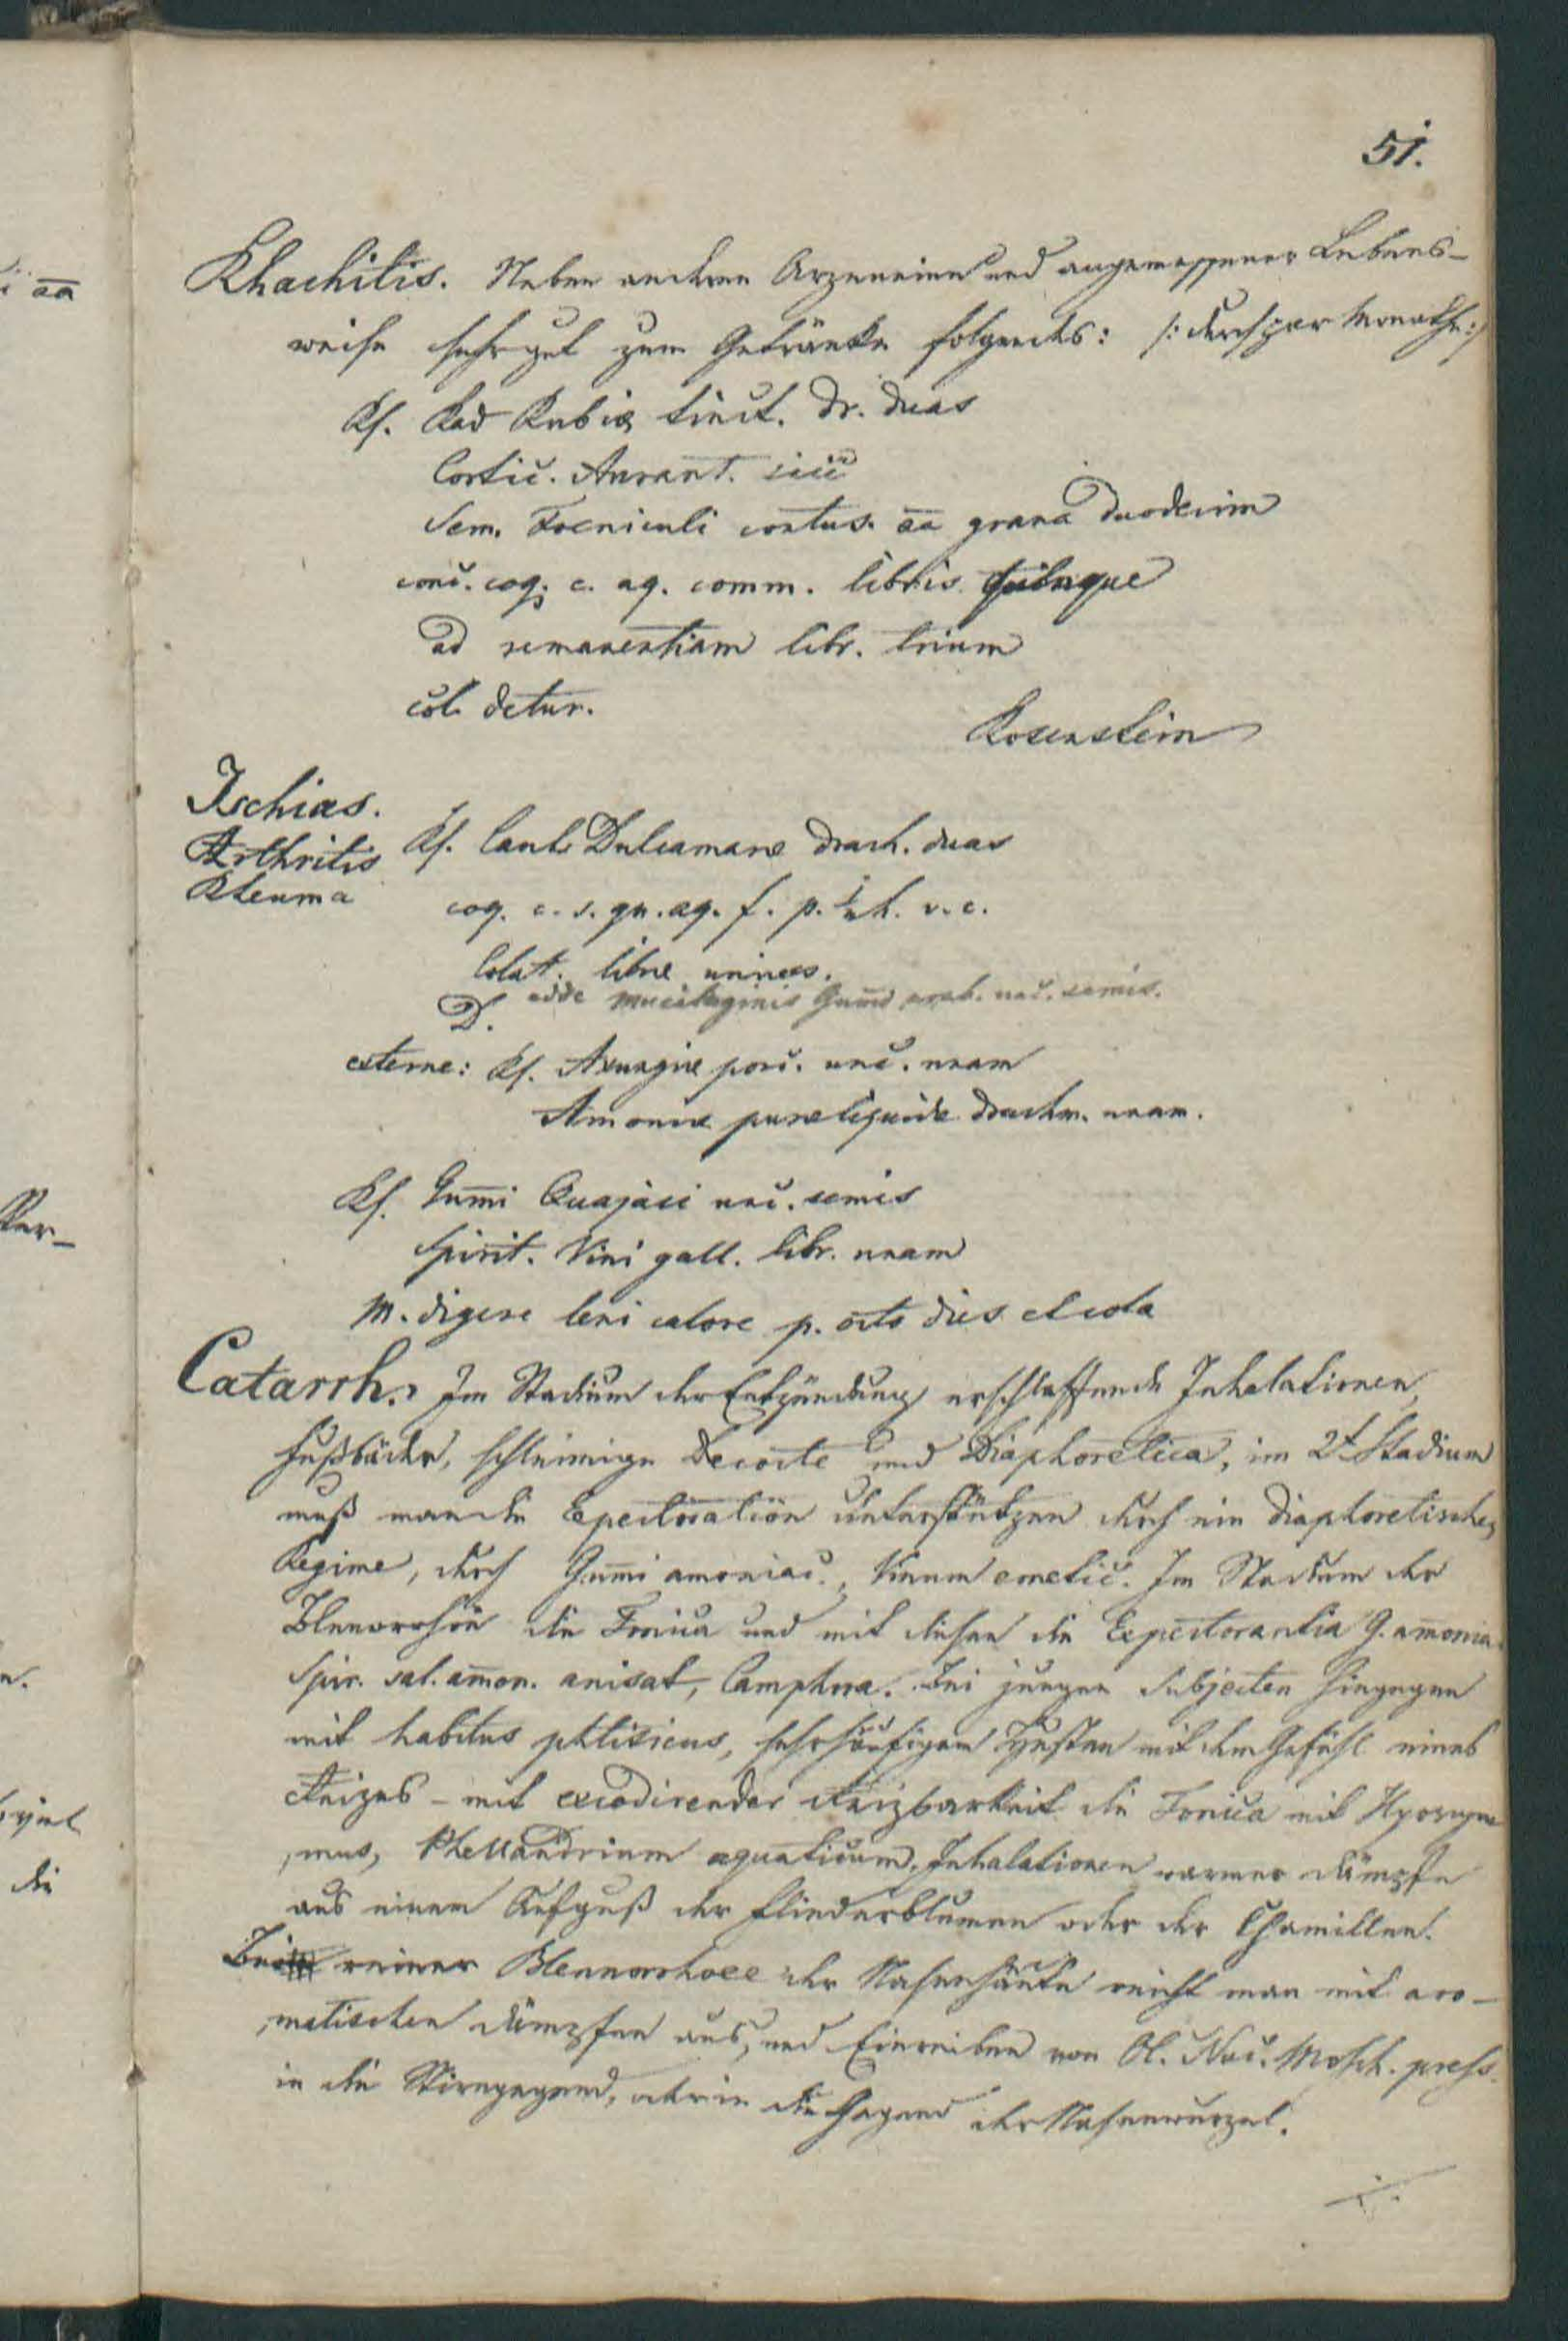 51.
Rhachitis. Neben anderen Arzeneien und angemessener Lebens-
weise sehr gut zum Getränke folgendes: /: durch paar Monathe :/
Rf. Rad Rubiæ tinct. dr. duas
Cortic. Aurant. sicc
Sem. Foeniculi contus. aa grana duodecim
conc. coq. c. aq. comm. libris quinque
ad remanentiam libr. trium
col. detur.
Rosenstein
Ischias.
Arthritis
Rheuma
Rf. Caul. Dulcamaræ drach. duas
coq. c. s. qu. aq. f. p. ½ h. v. c.
Colat. libræ unius.
adde mucilaginis Gum̄i arab. unc. semis.
D.
externe: Rf. Axungiæ porc. unc. unam
Amoniæ puræ liquidæ drachm. unam.
Rf. Gum̄i Quajaci unc. semis
Spirit. Vini gall. libr. unam
M. digere leni calore p. octo dies et cola
Catarrh. Im Stadium der Entzündung erschlaffende Inhalationen,
Fußbäder, schleimige Decocte und Diaphoretica, im 2t Stadium
muß man die Expectoration unterstützen durch ein diaphoretisches
Regime, durch Gum̄i amoniac., Vinum emetic. Im Stadium der
Blenorrhöe die Tonica und mit diesen die Expectorantia G. am̄onia.
Spir. sal. am̄on. anisat, Camphora. Bei jungen Subjecten hingegen
mit habitus phtisicus, sehr häufigem Husten mit dem Gefühl eines
Reizes – mit excedirender Reizbarkeit die Tonica mit Hyoscya
mus, Phellandrium aquaticum, Inhalationen warmer Dämpfe
aus einem Aufguß der Fliederblumen oder der Chamillen.
Bei reiner Blennorrhoee der Nasenhäute reicht man mit aro-
matischen Dämpfen aus, und Einreiben von Ol. Nuc. Mosch. press.
in die Stirngegend, oder in die Gegend der Nasenwurzel.
./.
aa
Ver-
n.
die